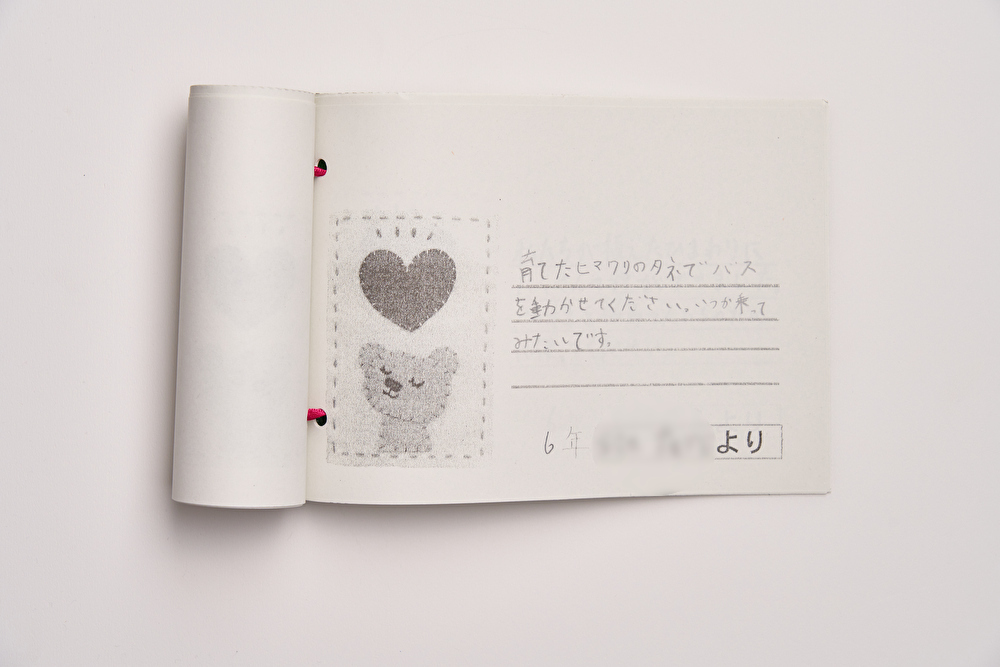 育てたヒマワリのタネでバス
を動かせてください。いつか乗って
みたいです。
6年
より